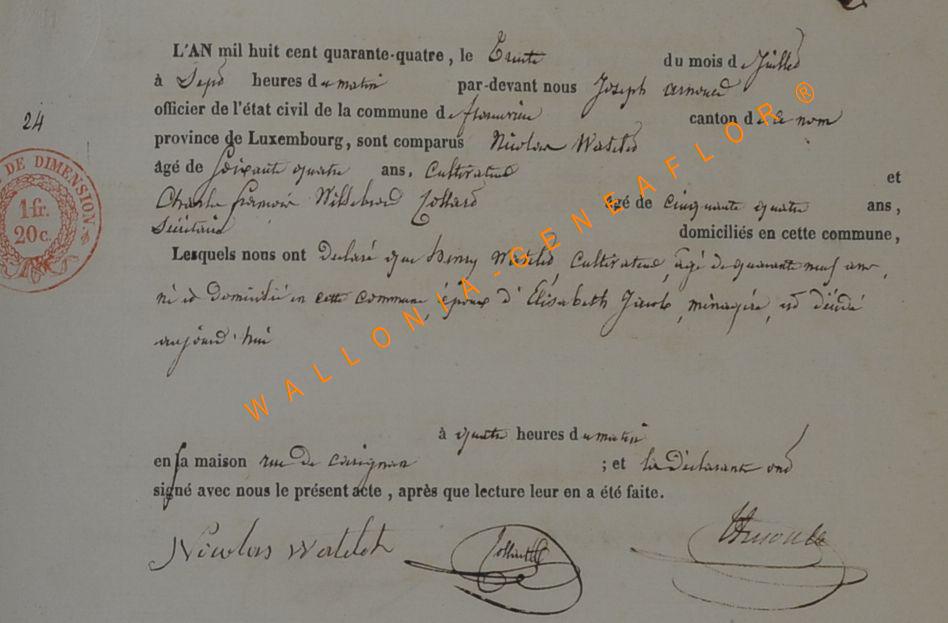 L'AN mil huit cent quarante-quatre, le Trente du mois de Juillet
à Sept heures du matin par-devant nous Joseph Arnould
officier de l'état civil de la commune de florenville canton de ce nom
24
province de Luxembourg, sont comparus Nicolas Watelet
âgé de Soixante quatre ans, Cultivateur
et
Charles françois Willebrord Collard âgé de Cinquante quatre ans,
Secrétaire domiciliés en cette commune,
Lesquels nous ont Déclaré que Henry Watelet, Cultivateur, agé de quarante neuf ans,
né et Domicilié en cette Commune, époux d'Elisabeth Jacob, ménagère, est décédé
aujourd'hui
à quatre heures du matin
en sa maison rue de Carignan ; et les Déclarants ont
signé avec nous le présent acte, après que lecture leur en a été faite.
Nicolas Watelet Collard Arnould
DE DIMENSION
1 fr.
20 c.
WALLONIA-GENEAFLOR®